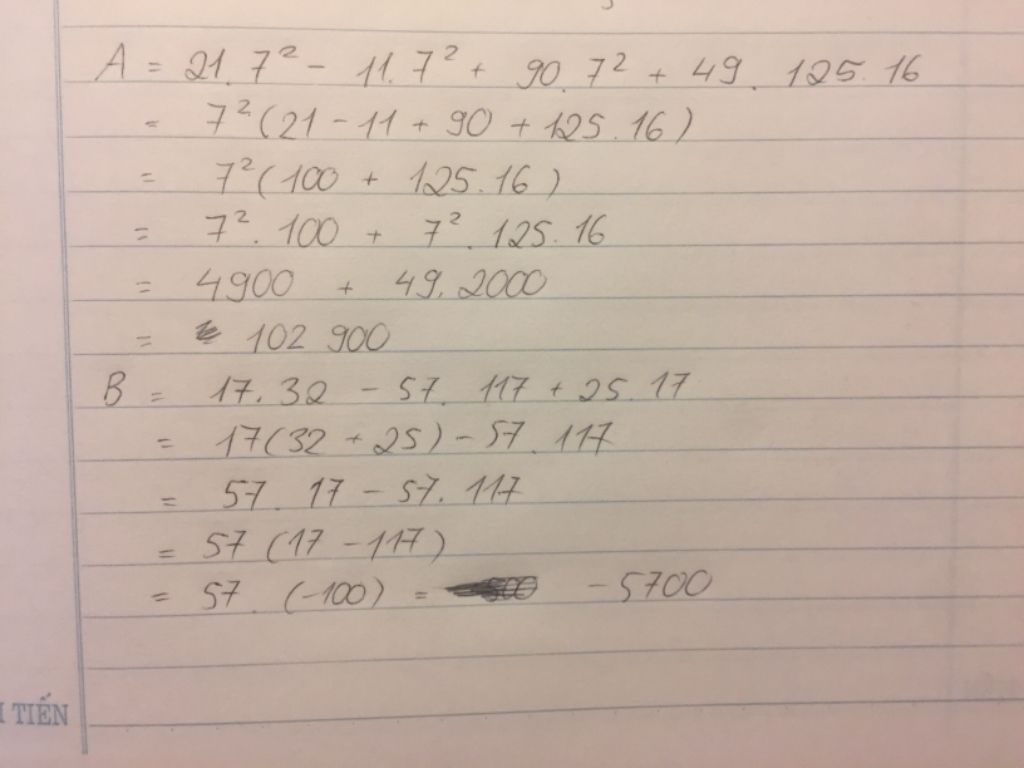 A = 21.7² - 11.7² + 90.7² + 49.125.16
= 7²(21 - 11 + 90 + 125.16)
= 7²(100 + 125.16)
= 7².100 + 7².125.16
= 4900 + 49.2000
= 102 900
B = 17.32 - 57.117 + 25.17
= 17(32 + 25) - 57.117
= 57.17 - 57.117
= 57(17 - 117)
= 57.(-100) = -5700
TIẾN